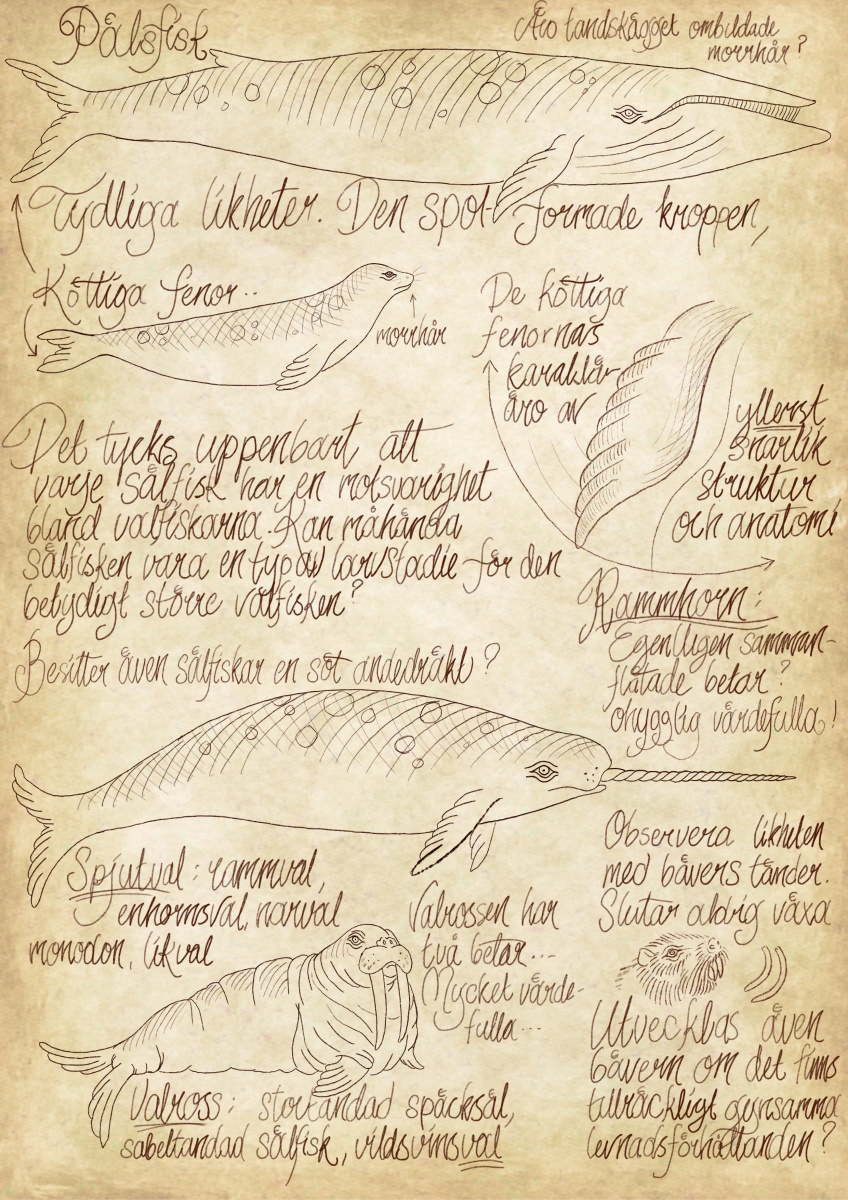 Pälsfisk
Äro tandskägget ombildade
morrhår?
Tydliga likheter. Den spol-formade kroppen,
Köttiga fenor..
morrhår
De köttiga
fenornas
karaktä-
äro av
ytterst
snarlik
struktur
och anatomi
Det tycks uppenbart att
varje sälfisk har en motsvarighet
bland valfiskarna. Kan måhända
sälfisken vara en typ av larvstadie för den
betydigt större valfisken?
Rammhorn:
Egentligen samman-
flätade betar?
ohygglig värdefulla!
Besitter även sälfiskar en söt andedräkt?
Spjutval: rammval,
enhornsval, narval
monodon, likval
Observera likheten
med bävers tänder.
Slutar aldrig växa
Valrossen har
två betar...
Mycket värde-
fulla...
Utvecklas även
bävern om det finns
tillräckligt gynsamma
levnadsförhållanden?
Valross: stortandad späcksäl,
sabeltandad sälfisk, vildsvinsval